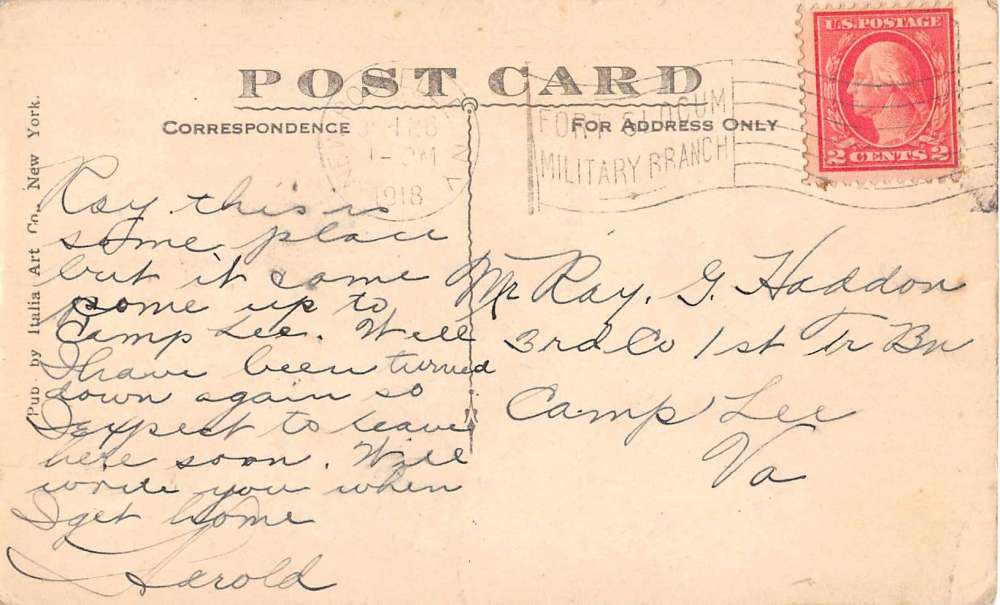 POST CARD
CORRESPONDENCE
FOR ADDRESS ONLY
U.S. POSTAGE
2 CENTS 2
1918
FORT SLOCUM
MILITARY BRANCH
Pub. by Italia Art Co., New York.
Ray this is
some place
but it
come up to
Camp Lee. Well
I have been turned
down again so
I expect to leave
here soon. Will
write you when
I get home
Harold
Mr Ray. G. Haddon
3rd Co 1st Tr Bn
Camp Lee
Va